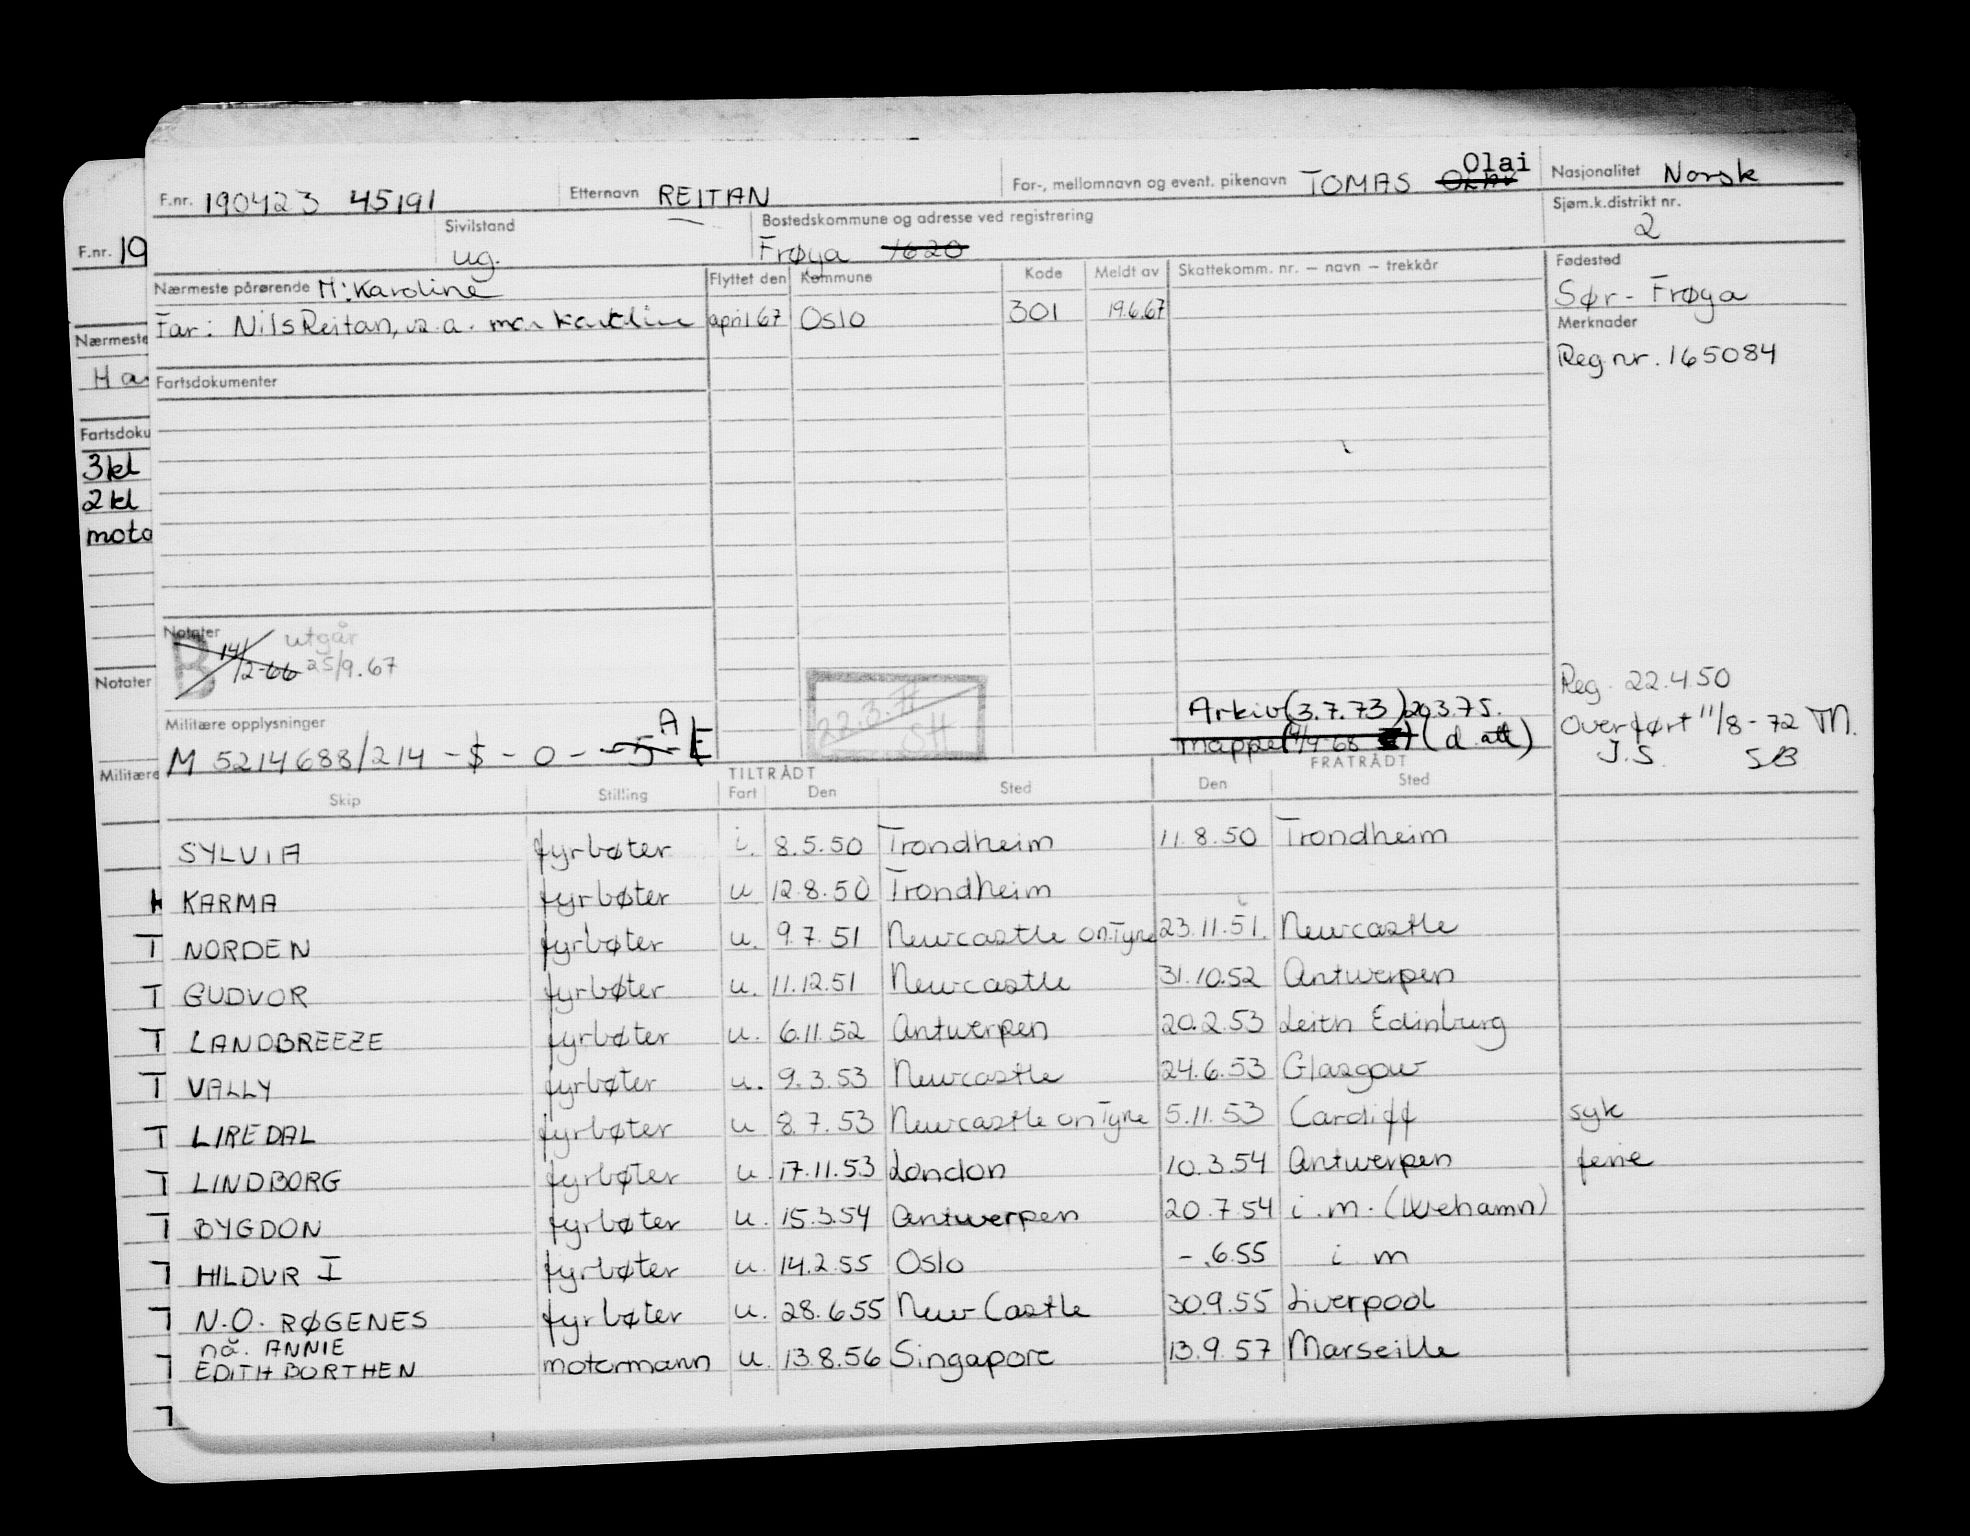 F.nr. 190423 45191 Etternavn REITAN For-, mellomnavn og event. pikenavn TOMAS Olai Nasjonalitet Norsk
Sivilstand ug. Bostedskommune og adresse ved registrering Frøya 1620 Sjøm.k.distrikt nr. 2
Nærmeste pårørende M: Karoline Flyttet den Kommune Kode Meldt av Skattekomm. nr. – navn – trekkår Fødested Sør-Frøya
Far: Nils Reitan, april 67 Oslo 301 19.6.67 Merknader
Reg.nr. 165084
Fartsdokumenter
Notater
B 14/2-66 utgår 25/9.67
22.3. SH
Arkiv (3.7.73) 20.3.75.
mappe (d. att)
Reg. 22.4.50
Overført 11/8-72 TM.
J.S. SB
Militære opplysninger
M 5214688/214 - $ - 0 - 5 A E
TILTRÅDT FRATRÅDT
Skip Stilling Fart Den Sted Den Sted
SYLVIA fyrbøter i. 8.5.50 Trondheim 11.8.50 Trondheim
KARMA fyrbøter u 12.8.50 Trondheim
NORDEN fyrbøter u. 9.7.51 Newcastle on Tyne 23.11.51. Newcastle
GUDVOR fyrbøter u. 11.12.51 Newcastle 31.10.52 Antwerpen
LANDBREEZE fyrbøter u. 6.11.52 Antwerpen 20.2.53 Leith Edinburg
VALLY fyrbøter u. 9.3.53 Newcastle 24.6.53 Glasgow
LIREDAL fyrbøter u 8.7.53 Newcastle on Tyne 5.11.53 Cardiff syk
LINDBORG fyrbøter u. 17.11.53 London 10.3.54 Antwerpen ferie
BYGDON fyrbøter u. 15.3.54 Antwerpen 20.7.54 i.m. (Mehamn)
HILDUR I fyrbøter u. 14.2.55 Oslo -.6.55 i m
N.O. RØGENES fyrbøter u. 28.6.55 New Castle 30.9.55 Liverpool
nå. ANNIE
EDITH BORTHEN motormann u. 13.8.56 Singapore 13.9.57 Marseille
F.nr. 19
Nærmeste
Ha
Fartsdoku
3kl
2kl
moto
Notater
Militære